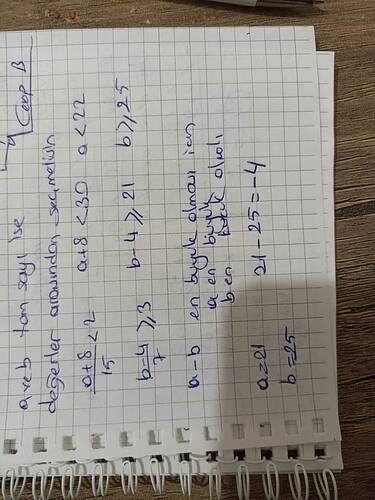 Cevap B
a ve b tam sayı ise
değerler arasından seçmeliyiz
a+8/15 < 2 a+8 < 30 a < 22
b-4/7 ≥ 3 b-4 ≥ 21 b ≥ 25
a-b en büyük olması için
a en büyük
b en olmalı
a=21 21-25=-4
b=25